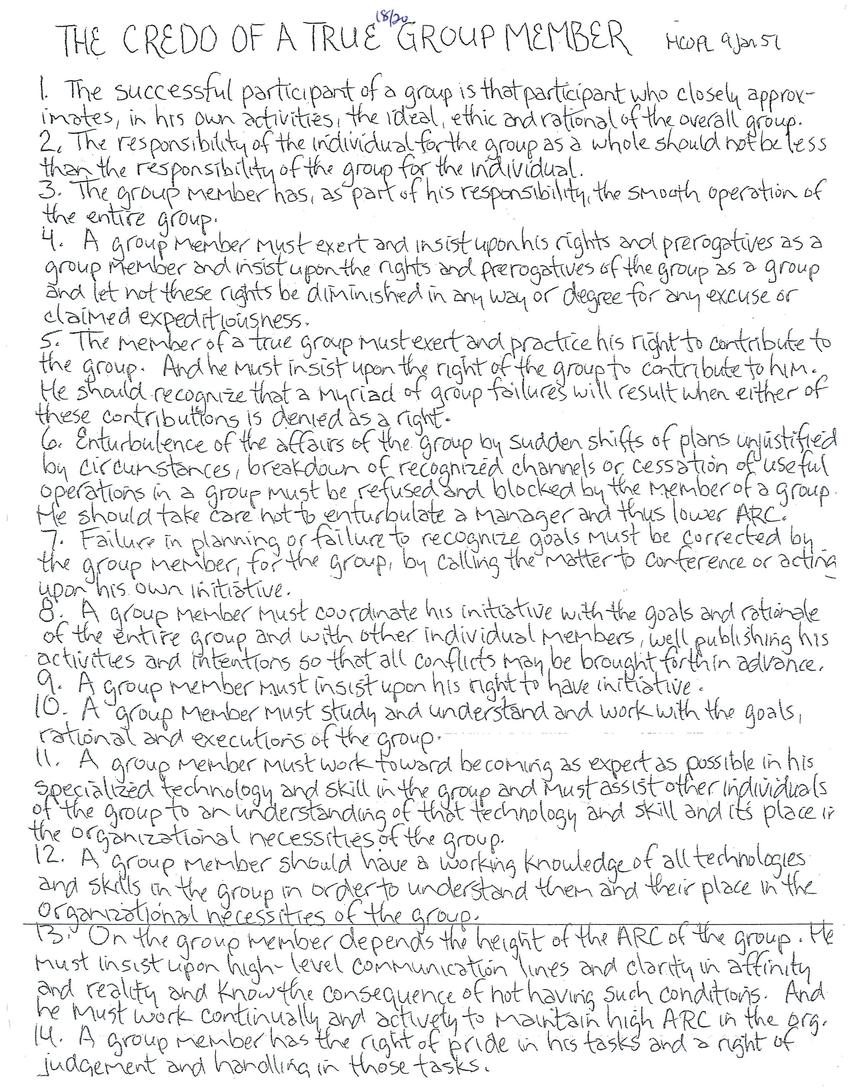 18/20
THE CREDO OF A TRUE GROUP MEMBER HCOPL 9 Jan 51
1. The successful participant of a group is that participant who closely approx-
imates, in his own activities, the ideal, ethic and rational of the overall group.
2. The responsibility of the individual for the group as a whole should not be less
than the responsibility of the group for the individual.
3. The group member has, as part of his responsibility, the smooth operation of
the entire group.
4. A group member must exert and insist upon his rights and prerogatives as a
group member and insist upon the rights and prerogatives of the group as a group
and let not these rights be diminished in any way or degree for any excuse or
claimed expeditiousness.
5. The member of a true group must exert and practice his right to contribute to
the group. And he must insist upon the right of the group to contribute to him.
He should recognize that a myriad of group failures will result when either of
these contributions is denied as a right.
6. Enturbulence of the affairs of the group by sudden shifts of plans unjustified
by circumstances, breakdown of recognized channels or cessation of useful
operations in a group must be refused and blocked by the member of a group.
He should take care not to enturbulate a manager and thus lower ARC.
7. Failure in planning or failure to recognize goals must be corrected by
the group member, for the group, by calling the matter to conference or acting
upon his own initiative.
8. A group member must coordinate his initiative with the goals and rationale
of the entire group and with other individual members, well publishing his
activities and intentions so that all conflicts may be brought forth in advance.
9. A group member must insist upon his right to have initiative.
10. A group member must study and understand and work with the goals,
rational and executions of the group.
11. A group member must work toward becoming as expert as possible in his
specialized technology and skill in the group and must assist other individuals
of the group to an understanding of that technology and skill and its place in
the organizational necessities of the group.
12. A group member should have a working knowledge of all technologies
and skills in the group in order to understand them and their place in the
organizational necessities of the group.
13. On the group member depends the height of the ARC of the group. He
must insist upon high-level communication lines and clarity in affinity
and reality and know the consequence of not having such conditions. And
he must work continually and actively to maintain high ARC in the org.
14. A group member has the right of pride in his tasks and a right of
judgement and handling in those tasks.